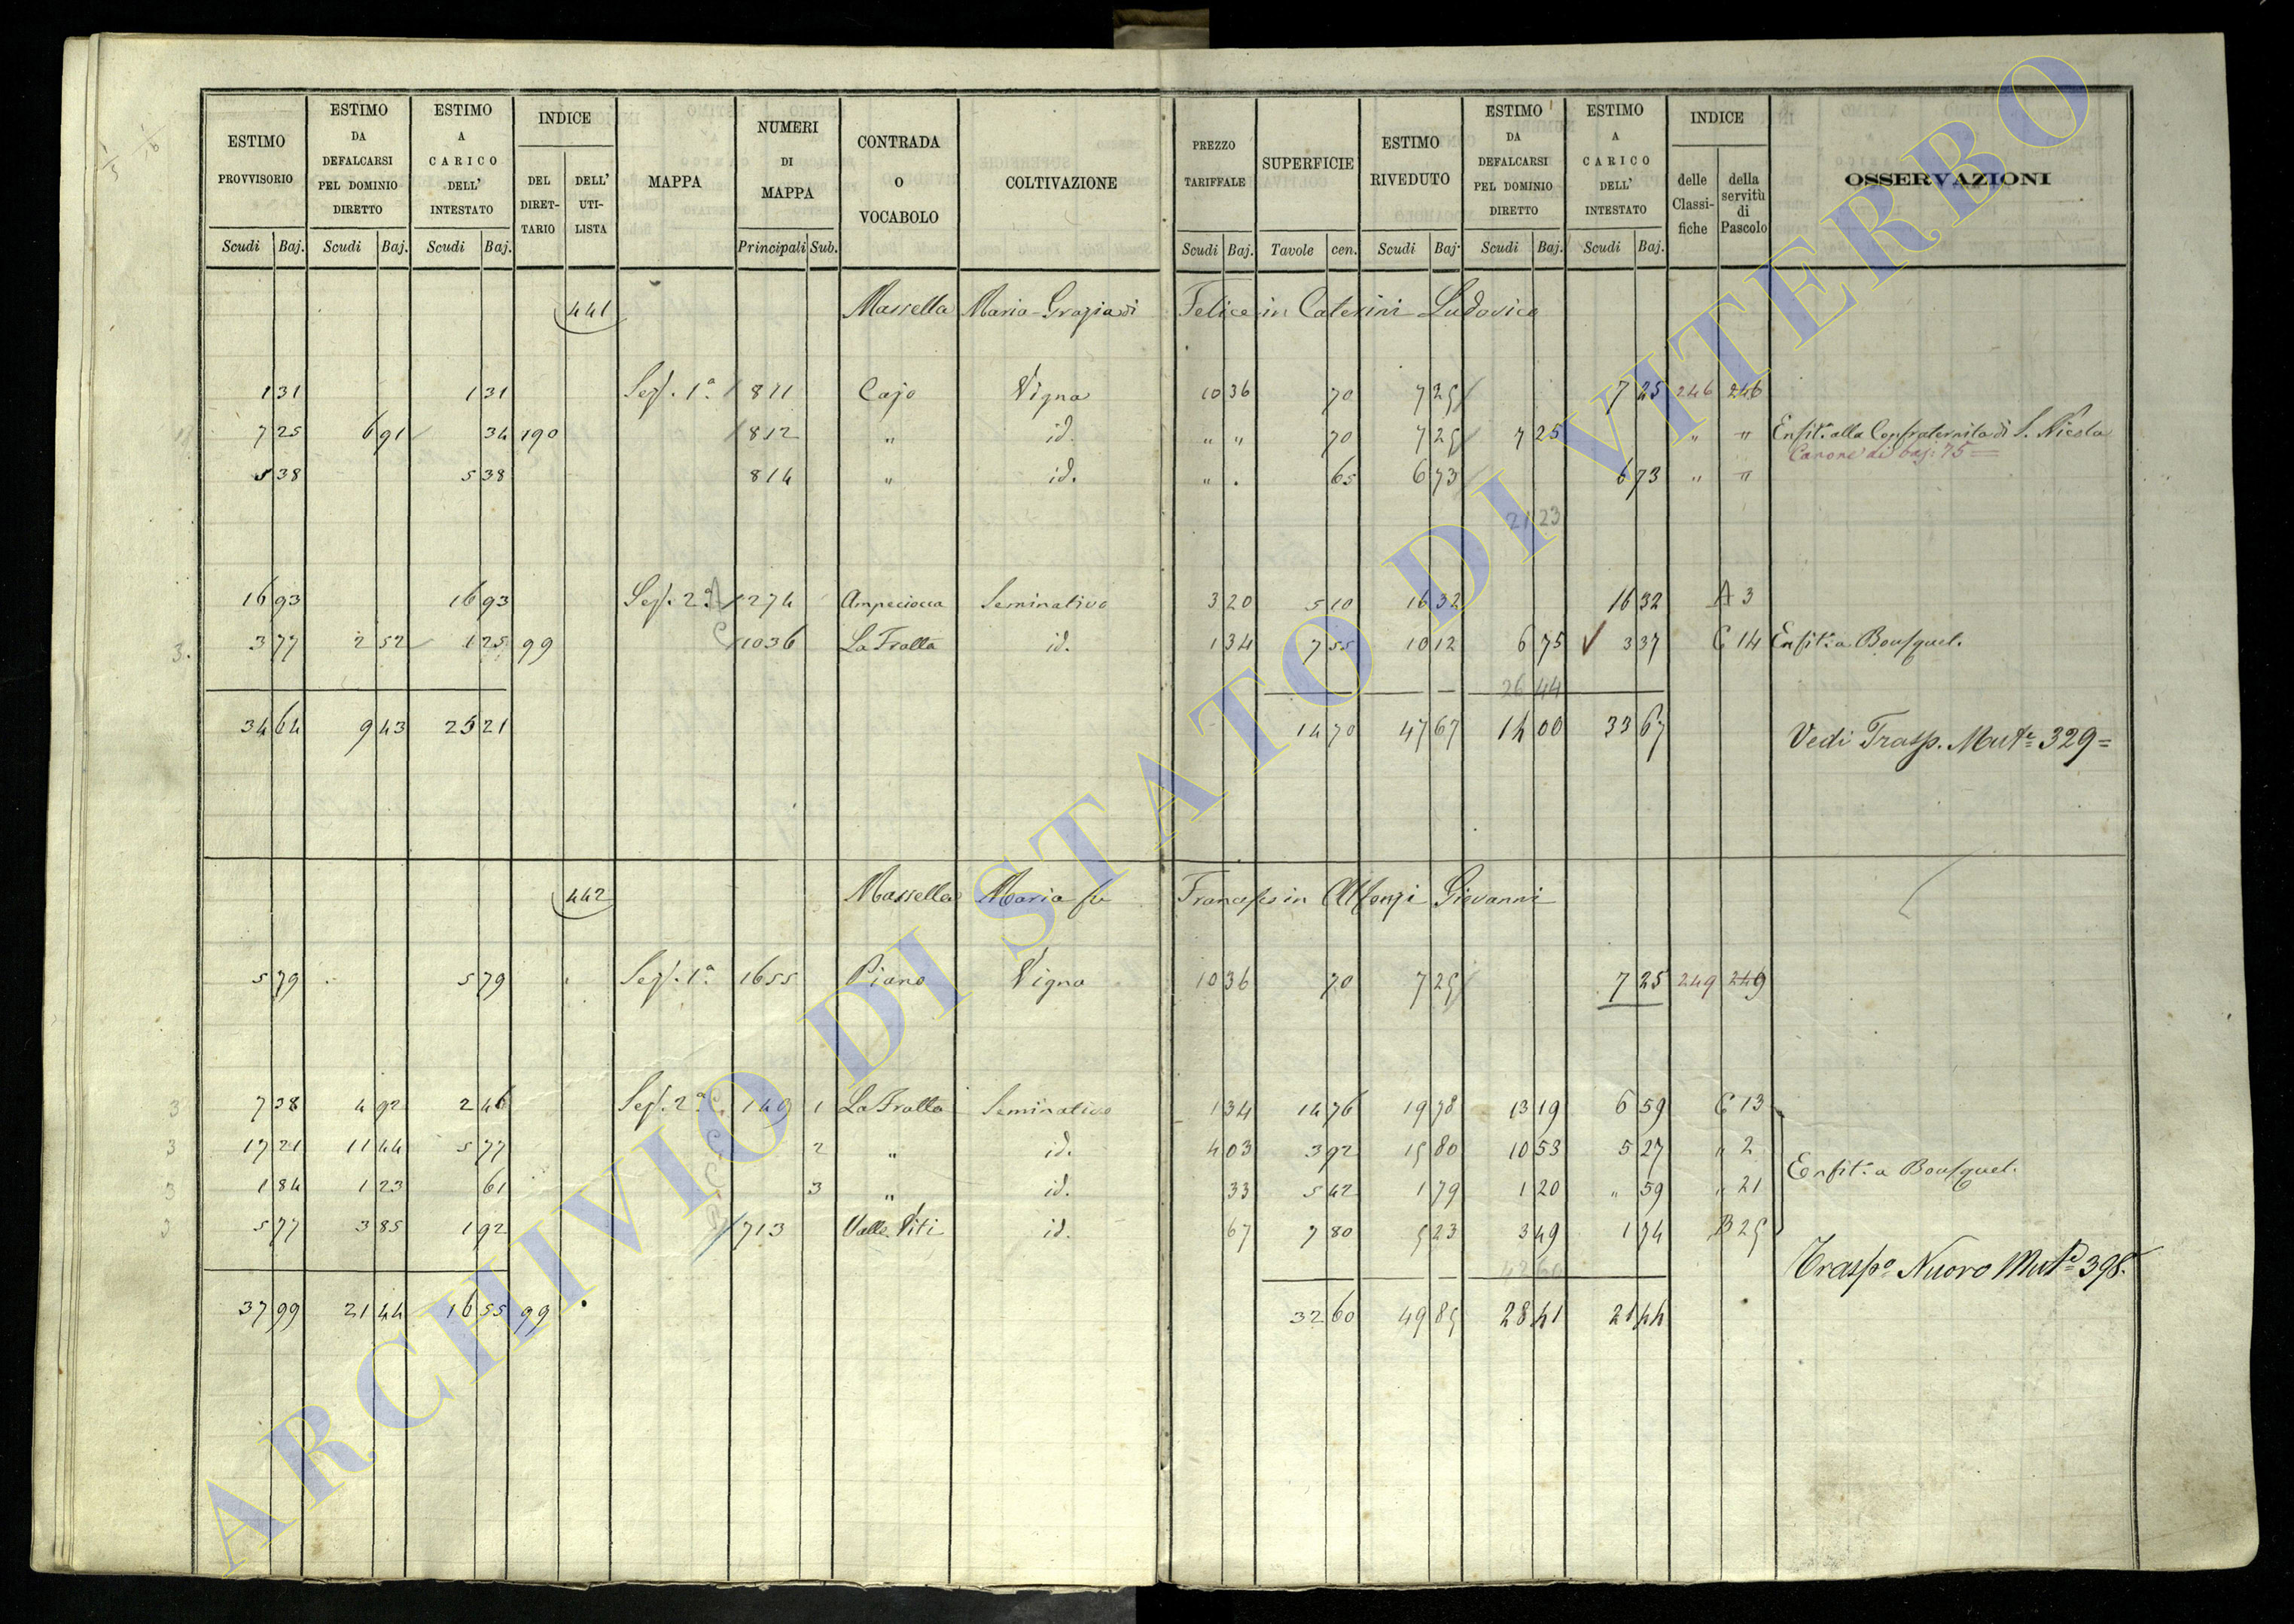 ESTIMO PROVVISORIO ESTIMO DA DEFALCARSI PEL DOMINIO DIRETTO ESTIMO A CARICO DELL' INTESTATO INDICE DEL DIRET- TARIO DELL' UTI- LISTA MAPPA NUMERI DI MAPPA CONTRADA O VOCABOLO COLTIVAZIONE PREZZO TARIFFALE SUPERFICIE ESTIMO RIVEDUTO ESTIMO DA DEFALCARSI PEL DOMINIO DIRETTO ESTIMO A CARICO DELL' INTESTATO INDICE delle Classi- fiche della servitù di Pascolo OSSERVAZIONI
Scudi Baj. Scudi Baj. Scudi Baj. Principali Sub. Scudi Baj. Tavole cen. Scudi Baj. Scudi Baj. Scudi Baj.
441 Massella Maria Grazia di Felice in Caterini Ludovico
1 31 1 31 Sez. 1ª 811 Cajo Vigna 10 36 70 7 25 7 25 246 246
7 25 6 91 34 190 812 " id. " " 70 7 25 7 25 " " Enfit.ª alla Confraternita di S. Nicola
Canone di baj: 75 =
5 38 5 38 814 " id. " . 65 6 73 6 73 " "
21 23
16 93 16 93 Sez. 2ª A 274 Ampeciocca Seminativo 3 20 5 10 16 32 16 32 A 3
3. 3 77 2 52 1 25 99 C 1036 La Fratta id. 1 34 7 55 10 12 6 75 3 37 C 14 Enfit.ª a Bousquet.
26 44
34 64 9 43 25 21 14 70 47 67 14 00 33 67
Vedi Trasp. Mut.e 329=
442 Massella Maria fu Francesco in Alfonzi Giovanni
5 79 5 79 Sez. 1ª 1655 Piano Vigna 10 36 70 7 25 7 25 249 249
3 7 38 4 92 2 46 Sez. 2ª C 149 1 La Fratta Seminativo 1 34 14 76 19 78 13 19 6 59 C 13
3 17 21 11 44 5 77 C 2 " id. 4 03 3 92 15 80 10 53 5 27 " 2
Enfit.ª a Bousquet.
3 1 84 1 23 61 C 3 " id. 33 5 42 1 79 1 20 " 59 " 21
3 5 77 3 85 1 92 713 Valle Viti id. 67 7 80 5 23 3 49 1 74 B 25
Trasp.o Nuovo Mut.e 398.
37 99 21 44 16 55 99 32 60 49 85 28 41 21 44
ARCHIVIO DI STATO DI VITERBO